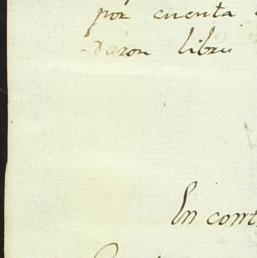 por cuenta
-daron libre
En cont